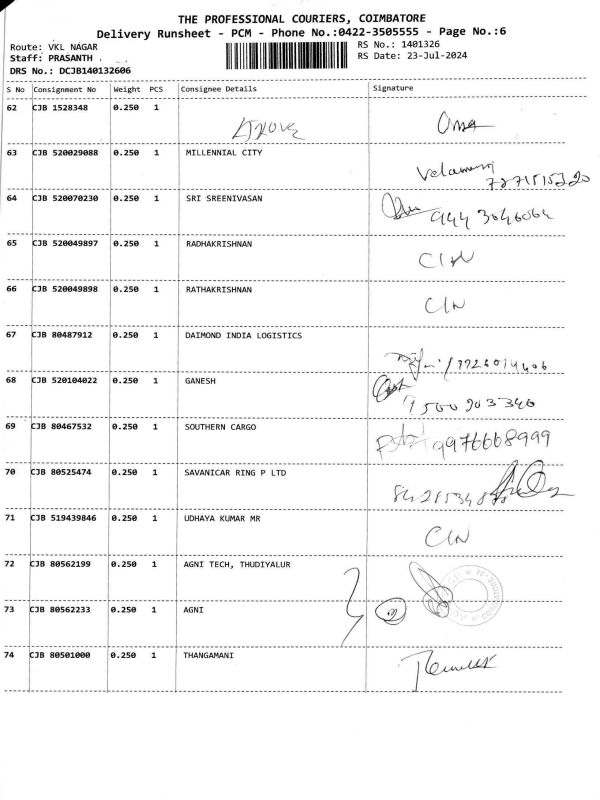 THE PROFESSIONAL COURIERS, COIMBATORE
Delivery Runsheet - PCM - Phone No.:0422-3505555 - Page No.:6
Route: VKL NAGAR RS No.: 1401326
Staff: PRASANTH . RS Date: 23-Jul-2024
DRS No.: DCJB140132606
S No Consignment No Weight PCS Consignee Details Signature
62 CJB 1528348 0.250 1
63 CJB 520029088 0.250 1 MILLENNIAL CITY
64 CJB 520070230 0.250 1 SRI SREENIVASAN
944 3046064
65 CJB 520049897 0.250 1 RADHAKRISHNAN
66 CJB 520049898 0.250 1 RATHAKRISHNAN
67 CJB 80487912 0.250 1 DAIMOND INDIA LOGISTICS
68 CJB 520104022 0.250 1 GANESH
9500203346
69 CJB 80467532 0.250 1 SOUTHERN CARGO
9976668999
70 CJB 80525474 0.250 1 SAVANICAR RING P LTD
71 CJB 519439846 0.250 1 UDHAYA KUMAR MR
72 CJB 80562199 0.250 1 AGNI TECH, THUDIYALUR
73 CJB 80562233 0.250 1 AGNI
2
74 CJB 80501000 0.250 1 THANGAMANI